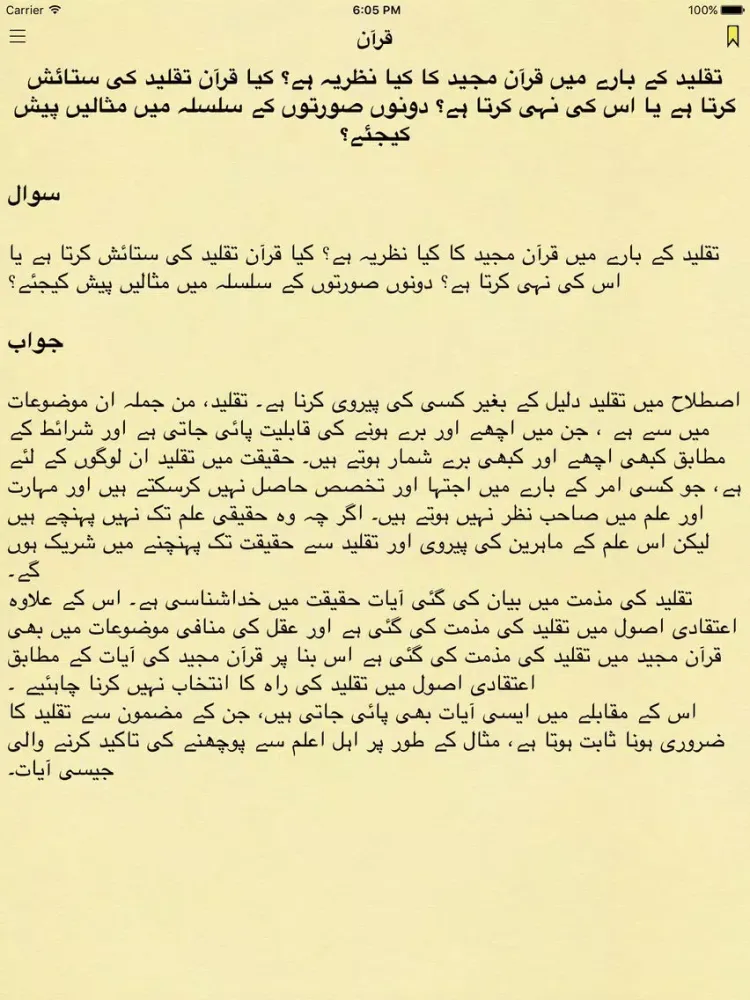 Carrier 6:05 PM 100%
قرآن
تقلید کے بارے میں قرآن مجید کا کیا نظریہ ہے؟ کیا قرآن تقلید کی ستائش
کرتا ہے یا اس کی نہی کرتا ہے؟ دونوں صورتوں کے سلسلہ میں مثالیں پیش
کیجئے؟
سوال
تقلید کے بارے میں قرآن مجید کا کیا نظریہ ہے؟ کیا قرآن تقلید کی ستائش کرتا ہے یا
اس کی نہی کرتا ہے؟ دونوں صورتوں کے سلسلہ میں مثالیں پیش کیجئے؟
جواب
اصطلاح میں تقلید دلیل کے بغیر کسی کی پیروی کرنا ہے۔ تقلید، من جملہ ان موضوعات
میں سے ہے ، جن میں اچھے اور برے ہونے کی قابلیت پائی جاتی ہے اور شرائط کے
مطابق کبھی اچھے اور کبھی برے شمار ہوتے ہیں۔ حقیقت میں تقلید ان لوگوں کے لئے
ہے، جو کسی امر کے بارے میں اجتہا اور تخصص حاصل نہیں کرسکتے ہیں اور مہارت
اور علم میں صاحب نظر نہیں ہوتے ہیں۔ اگر چہ وہ حقیقی علم تک نہیں پہنچے ہیں
لیکن اس علم کے ماہرین کی پیروی اور تقلید سے حقیقت تک پہنچنے میں شریک ہوں
گے۔
تقلید کی مذمت میں بیان کی گئی آیات حقیقت میں خداشناسی ہے۔ اس کے علاوہ
اعتقادی اصول میں تقلید کی مذمت کی گئی ہے اور عقل کی منافی موضوعات میں بھی
قرآن مجید میں تقلید کی مذمت کی گئی ہے اس بنا پر قرآن مجید کی آیات کے مطابق
اعتقادی اصول میں تقلید کی راہ کا انتخاب نہیں کرنا چاہئیے ۔
اس کے مقابلے میں ایسی آیات بھی پائی جاتی ہیں، جن کے مضمون سے تقلید کا
ضروری ہونا ثابت ہوتا ہے، مثال کے طور پر اہل اعلم سے پوچھنے کی تاکید کرنے والی
جیسی آیات۔